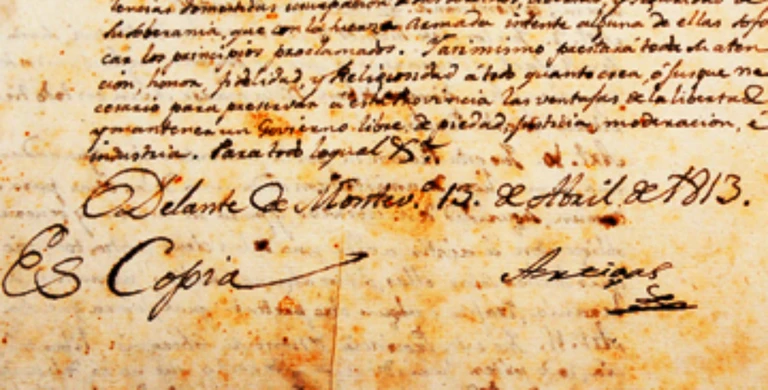 Soberania, que con la fuerza armada intente alguna de ellas sofo
car los principios proclamados. Tanimismo prestará toda su aten
cion, honor, fidelidad, y Religiosidad á todo quanto crea, ó jusque ne
cesario para preservar á esta Provincia las ventajas de la libertad
y mantener un Govierno libre, de piedad, justicia, moderacion, é
industria. Para todo lo qual &.ª
Delante de Montev.º 13. de Abril de 1813.
Es Copia Artigas